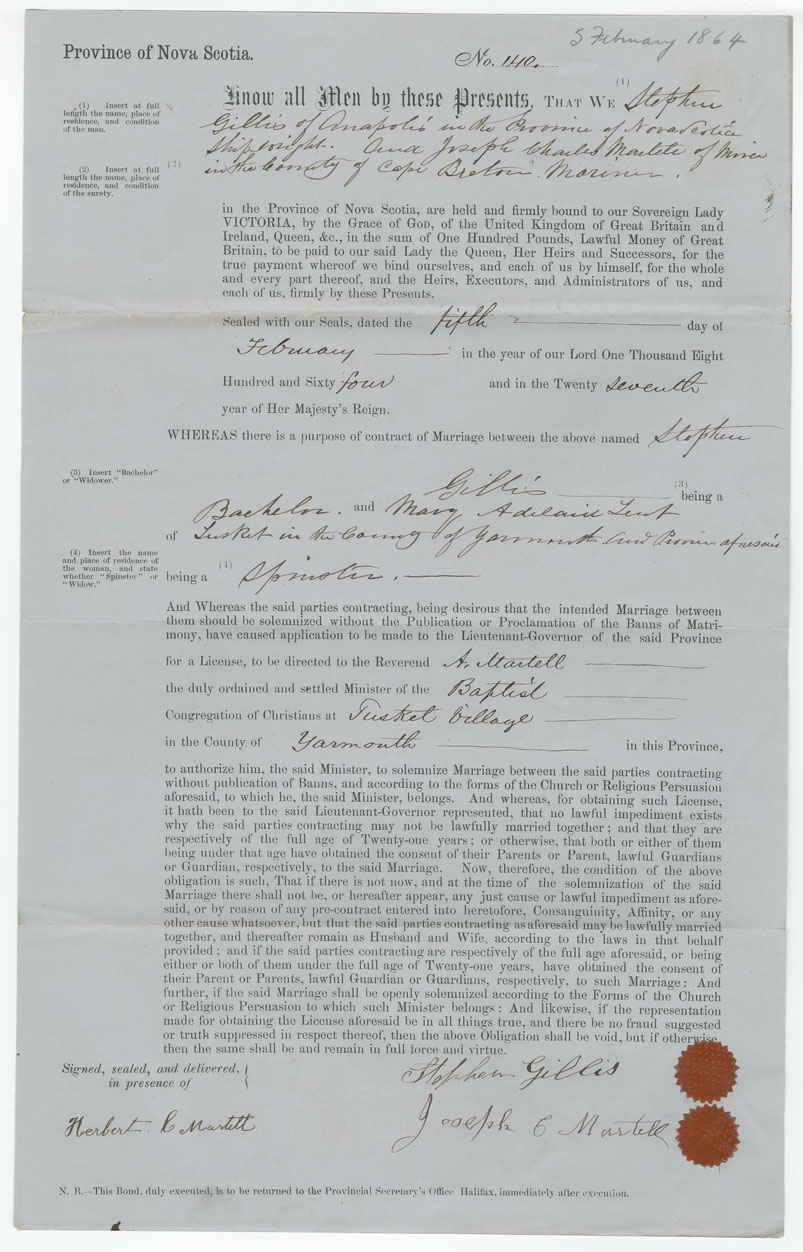 5 February 1864
Province of Nova Scotia.
No. 140.
Know all Men by these Presents, THAT WE (1) Stephen
Gillis of Anapolis in the Province of Nova Scotia
Shipwright. And Joseph Charles Martell of
(2) in the County of Cape Breton. Mariner.
(1) Insert at full
length the name, place of
residence, and condition
of the man.
(2) Insert at full
length the name, place of
residence, and condition
of the surety.
in the Province of Nova Scotia, are held and firmly bound to our Sovereign Lady
VICTORIA, by the Grace of GOD, of the United Kingdom of Great Britain and
Ireland, Queen, &c., in the sum of One Hundred Pounds, Lawful Money of Great
Britain, to be paid to our said Lady the Queen, Her Heirs and Successors, for the
true payment whereof we bind ourselves, and each of us by himself, for the whole
and every part thereof, and the Heirs, Executors, and Administrators of us, and
each of us, firmly by these Presents.
Sealed with our Seals, dated the fifth day of
February in the year of our Lord One Thousand Eight
Hundred and Sixty four and in the Twenty seventh
year of Her Majesty's Reign.
WHEREAS there is a purpose of contract of Marriage between the above named Stephen
(3) Insert "Bachelor"
or "Widower."
Gillis (3) being a
Bachelor. and Mary Adelaid Lent
of Tusket in the County of Yarmouth and Province aforesaid
(4) Insert the name
and place of residence of
the woman, and state
whether "Spinster" or
"Widow."
being a (4) Spinster.
And Whereas the said parties contracting, being desirous that the intended Marriage between
them should be solemnized without the Publication or Proclamation of the Banns of Matri-
mony, have caused application to be made to the Lieutenant-Governor of the said Province
for a License, to be directed to the Reverend A. Martell
the duly ordained and settled Minister of the Baptist
Congregation of Christians at Tusket Village
in the County of Yarmouth in this Province,
to authorize him, the said Minister, to solemnize Marriage between the said parties contracting
without publication of Banns, and according to the forms of the Church or Religious Persuasion
aforesaid, to which he, the said Minister, belongs. And whereas, for obtaining such License,
it hath been to the said Lieutenant-Governor represented, that no lawful impediment exists
why the said parties contracting may not be lawfully married together; and that they are
respectively of the full age of Twenty-one years; or otherwise, that both or either of them
being under that age have obtained the consent of their Parents or Parent, lawful Guardians
or Guardian, respectively, to the said Marriage. Now, therefore, the condition of the above
obligation is such, That if there is not now, and at the time of the solemnization of the said
Marriage there shall not be, or hereafter appear, any just cause or lawful impediment as afore-
said, or by reason of any pre-contract entered into heretofore, Consanguinity, Affinity, or any
other cause whatsoever, but that the said parties contracting as aforesaid may be lawfully married
together, and thereafter remain as Husband and Wife, according to the laws in that behalf
provided; and if the said parties contracting are respectively of the full age aforesaid, or being
either or both of them under the full age of Twenty-one years, have obtained the consent of
their Parent or Parents, lawful Guardian or Guardians, respectively, to such Marriage: And
further, if the said Marriage shall be openly solemnized according to the Forms of the Church
or Religious Persuasion to which such Minister belongs: And likewise, if the representation
made for obtaining the License aforesaid be in all things true, and there be no fraud suggested
or truth suppressed in respect thereof, then the above Obligation shall be void, but if otherwise,
then the same shall be and remain in full force and virtue.
Signed, sealed, and delivered,
in presence of
Stephen Gillis
Herbert. C Martell
Joseph C Martell
N. B.—This Bond, duly executed, is to be returned to the Provincial Secretary's Office Halifax, immediately after execution.